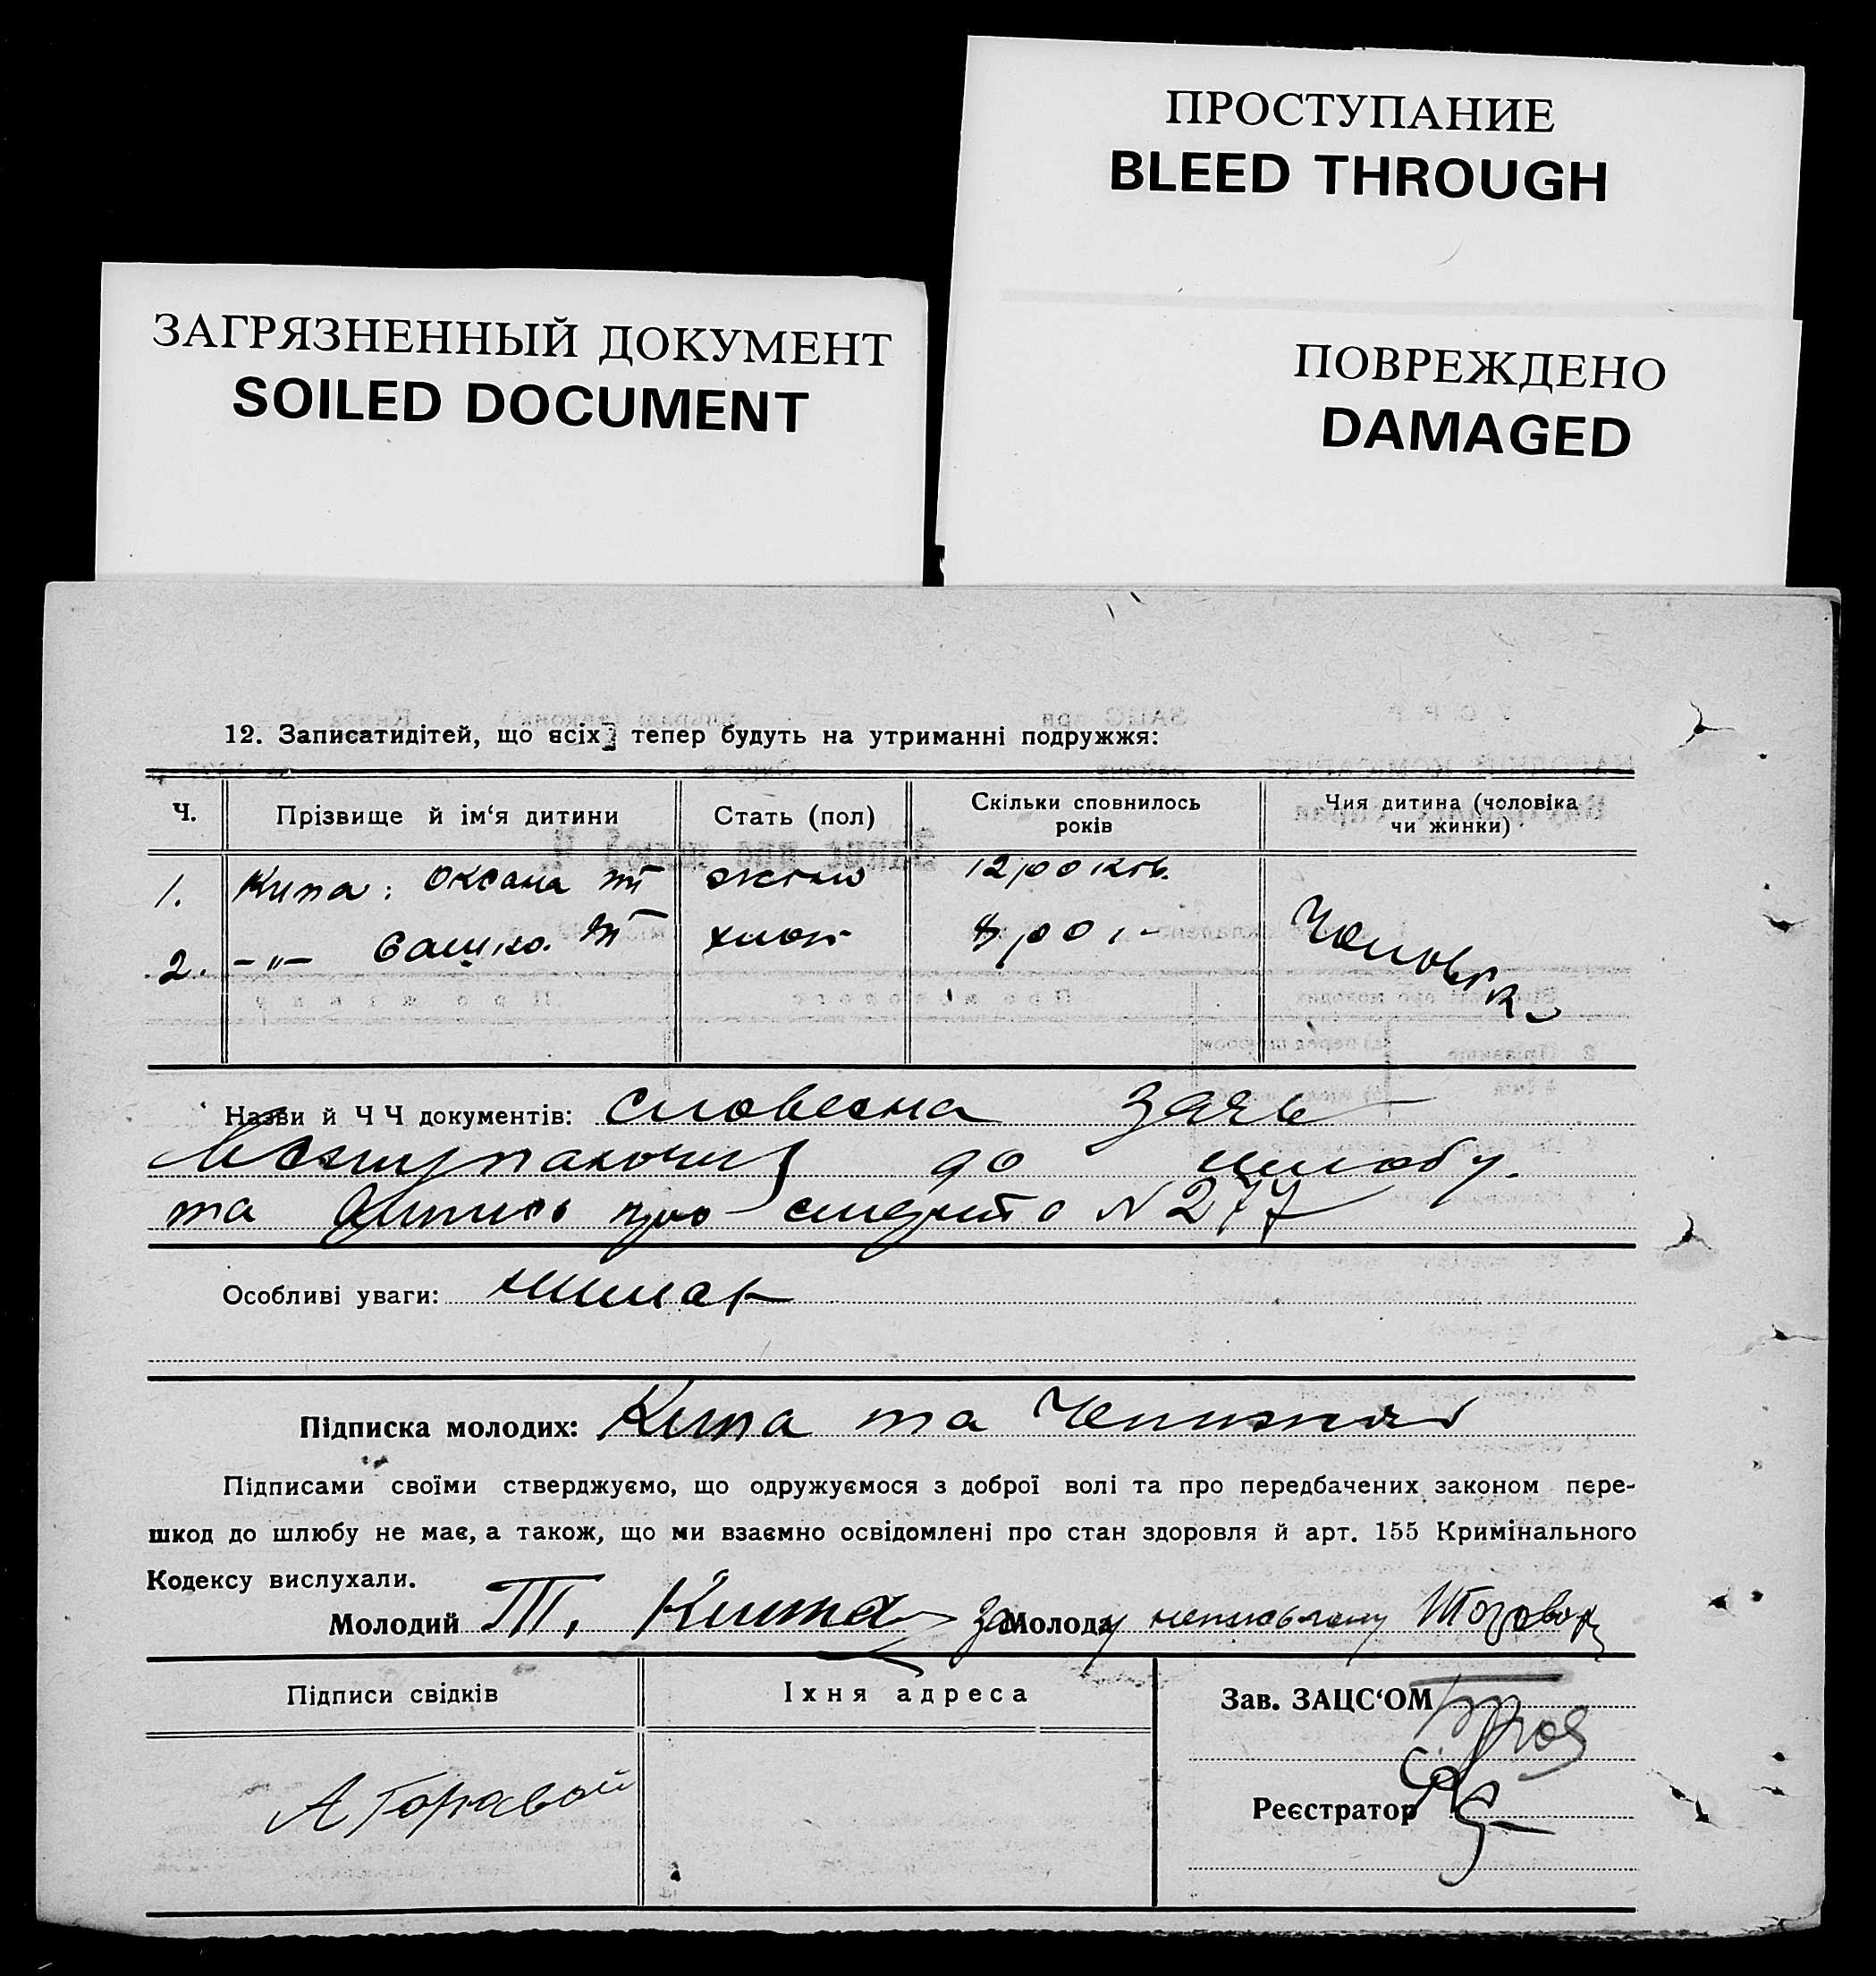 ПРОСТУПАНИЕ
BLEED THROUGH
ЗАГРЯЗНЕННЫЙ ДОКУМЕНТ
SOILED DOCUMENT
ПОВРЕЖДЕНО
DAMAGED
12. Записатидітей, що всіх тепер будуть на утриманні подружжя:
Ч. Прізвище й ім‘я дитини Стать (пол) Скільки сповнилось років Чия дитина (чоловіка чи жинки)
1. Кипа: Оксана 12 років.
2. -〃- Сашко. хлоп 8 ро,- Чоловік
Назви й Ч Ч документів: словесна заяв
до шлюбу.
та про N 277
Особливі уваги: нимає
Підписка молодих: Кипа та
Підписами своїми стверджуємо, що одружуємося з доброї волі та про передбачених законом пере-
шкод до шлюбу не має, а також, що ми взаємно освідомлені про стан здоровля й арт. 155 Кримінального
Кодексу вислухали.
Молодий Т. Кипа за Молоду неписьмену
Підписи свідків Їхня адреса Зав. ЗАЦС‘ОМ
Реєстратор